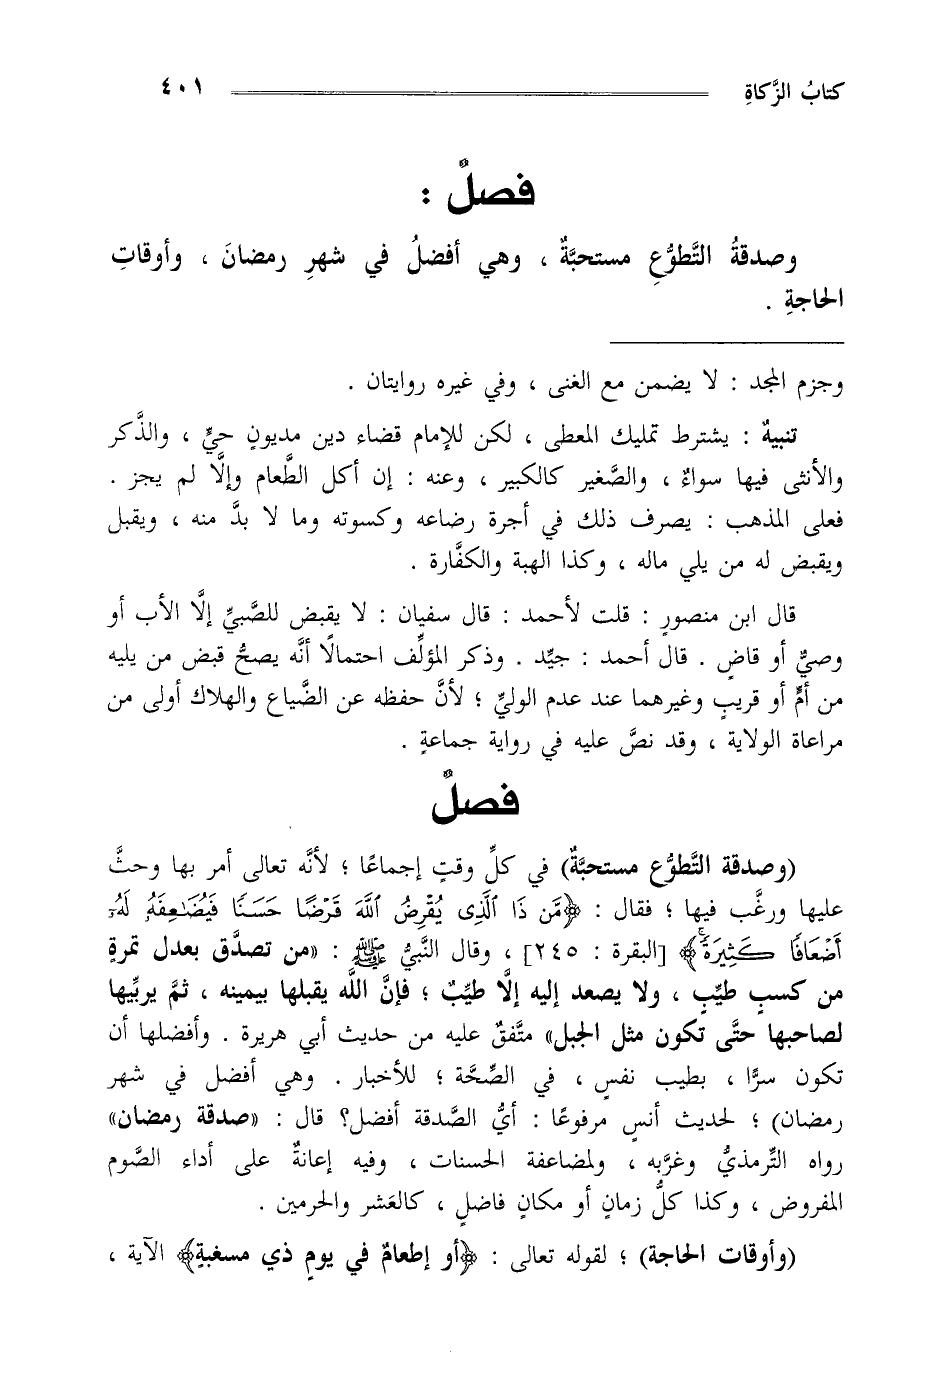 كتابُ الزَّكاةِ ٤٠١
فصلٌ :
وصدقةُ التَّطوُّعِ مستحبَّةٌ ، وهي أفضلُ في شهرِ رمضانَ ، وأوقاتِ
الحاجةِ .
وجزم المجد : لا يضمن مع الغنى ، وفي غيره روايتان .
تنبيهٌ : يشترط تمليك المعطى ، لكن للإمام قضاء دين مديونٍ حيٍّ ، والذَّكر
والأنثى فيها سواءٌ ، والصَّغير كالكبير ، وعنه : إن أكل الطَّعام وإلَّا لم يجز .
فعلى المذهب : يصرف ذلك في أجرة رضاعه وكسوته وما لا بدَّ منه ، ويقبل
ويقبض له من يلي ماله ، وكذا الهبة والكفَّارة .
قال ابن منصورٍ : قلت لأحمد : قال سفيان : لا يقبض للصَّبيِّ إلَّا الأب أو
وصيٌّ أو قاضٍ . قال أحمد : جيِّد . وذكر المؤلِّف احتمالًا أنَّه يصحُّ قبض من يليه
من أمٍّ أو قريبٍ وغيرهما عند عدم الوليِّ ؛ لأنَّ حفظه عن الضَّياع والهلاك أولى من
مراعاة الولاية ، وقد نصَّ عليه في رواية جماعةٍ .
فصلٌ
(وصدقة التَّطوُّع مستحبَّةٌ) في كلِّ وقتٍ إجماعًا ؛ لأنَّه تعالى أمر بها وحثَّ
عليها ورغَّب فيها ؛ فقال : ﴿مَّن ذَا ٱلَّذِى يُقْرِضُ ٱللَّهَ قَرْضًا حَسَنًا فَيُضَـٰعِفَهُۥ لَهُۥٓ
أَضْعَافًا كَثِيرَةً ۚ﴾ [البقرة : ٢٤٥] ، وقال النَّبيُّ ﷺ : «من تصدَّق بعدل تمرةٍ
من كسبٍ طيِّبٍ ، ولا يصعد إليه إلَّا طيِّبٌ ؛ فإنَّ اللَّه يقبلها بيمينه ، ثمَّ يربِّيها
لصاحبها حتَّى تكون مثل الجبل» متَّفقٌ عليه من حديث أبي هريرة . وأفضلها أن
تكون سرًّا ، بطيب نفسٍ ، في الصِّحَّة ؛ للأخبار . وهي أفضل في شهر
رمضان) ؛ لحديث أنسٍ مرفوعًا : أيُّ الصَّدقة أفضل؟ قال : «صدقة رمضان»
رواه التِّرمذيُّ وغرَّبه ، ولمضاعفة الحسنات ، وفيه إعانةٌ على أداء الصَّوم
المفروض ، وكذا كلُّ زمانٍ أو مكانٍ فاضلٍ ، كالعَشر والحرمين .
(وأوقات الحاجة) ؛ لقوله تعالى : ﴿أو إطعامٌ في يومٍ ذي مسغبةٍ﴾ الآية ،